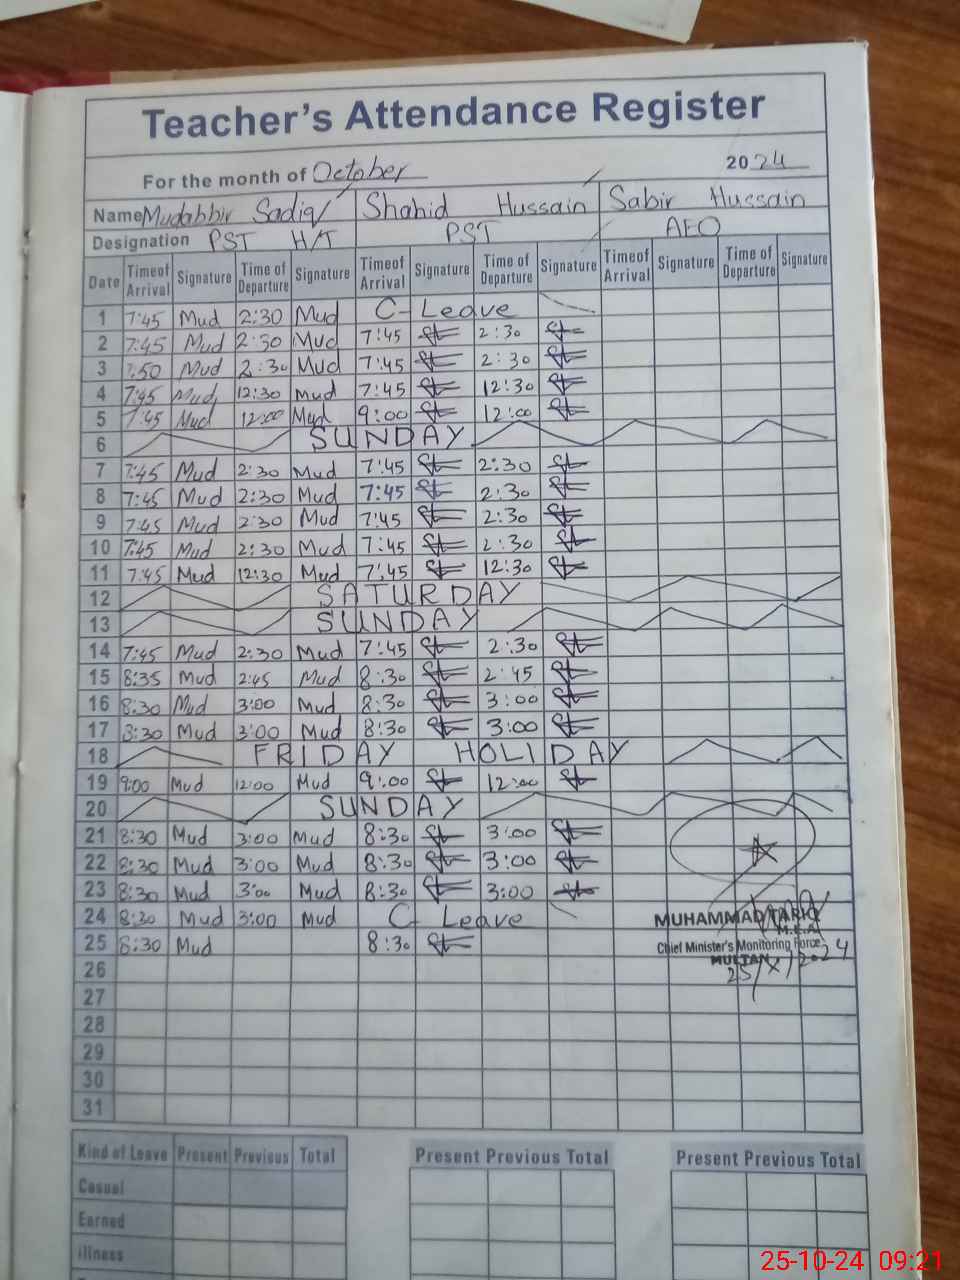 Teacher's Attendance Register
For the month of October 2024
Name Mudabbir Sadiq Shahid Hussain Sabir Hussain
Designation PST H/T PST AEO
Date Time of Arrival Signature Time of Departure Signature Time of Arrival Signature Time of Departure Signature Time of Arrival Signature Time of Departure Signature
1 7:45 Mud 2:30 Mud C- Leave
2 7:45 Mud 2:30 Mud 7:45 2:30
3 7:50 Mud 2:30 Mud 7:45 2:30
4 7:45 Mud 12:30 Mud 7:45 12:30
5 7:45 Mud 12:00 Mud 9:00 12:00
6 SUNDAY
7 7:45 Mud 2:30 Mud 7:45 2:30
8 7:45 Mud 2:30 Mud 7:45 2:30
9 7:45 Mud 2:30 Mud 7:45 2:30
10 7:45 Mud 2:30 Mud 7:45 2:30
11 7:45 Mud 12:30 Mud 7:45 12:30
12 SATURDAY
13 SUNDAY
14 7:45 Mud 2:30 Mud 7:45 2:30
15 8:35 Mud 2:45 Mud 8:30 2:45
16 8:30 Mud 3:00 Mud 8:30 3:00
17 8:30 Mud 3:00 Mud 8:30 3:00
18 FRIDAY HOLIDAY
19 9:00 Mud 12:00 Mud 9:00 12:00
20 SUNDAY
21 8:30 Mud 3:00 Mud 8:30 3:00
22 8:30 Mud 3:00 Mud 8:30 3:00
23 8:30 Mud 3:00 Mud 8:30 3:00
24 8:30 Mud 3:00 Mud C- Leave
MUHAMMAD TARIQ
M.E.A
25 8:30 Mud 8:30
Chief Minister's Monitoring Force
MULTAN
25/X/2024
26
27
28
29
30
31
Kind of Leave Present Previous Total Present Previous Total Present Previous Total
Casual
Earned
illness
25-10-24 09:21